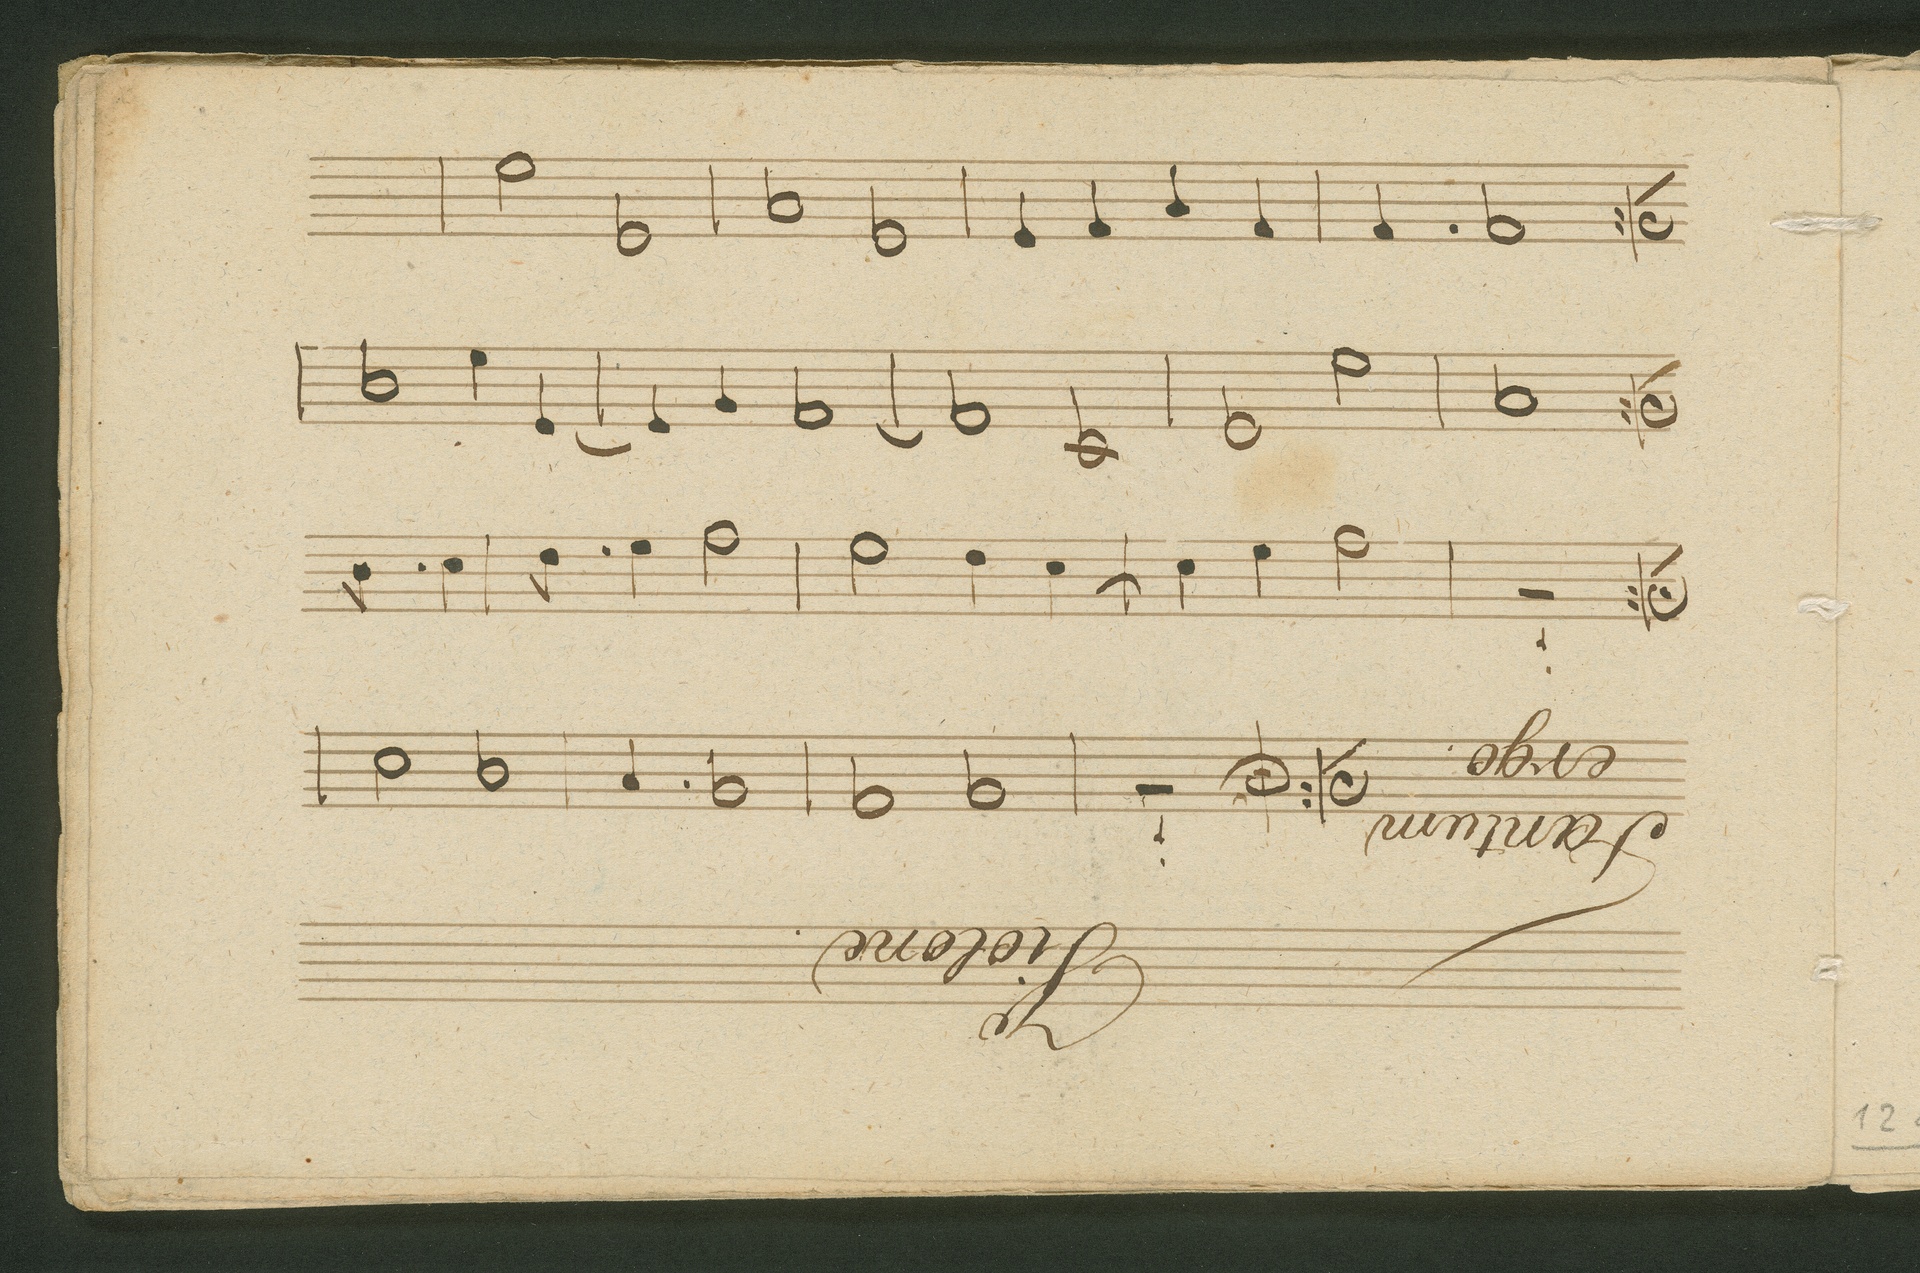 Violone
Tantum
ergo.
12